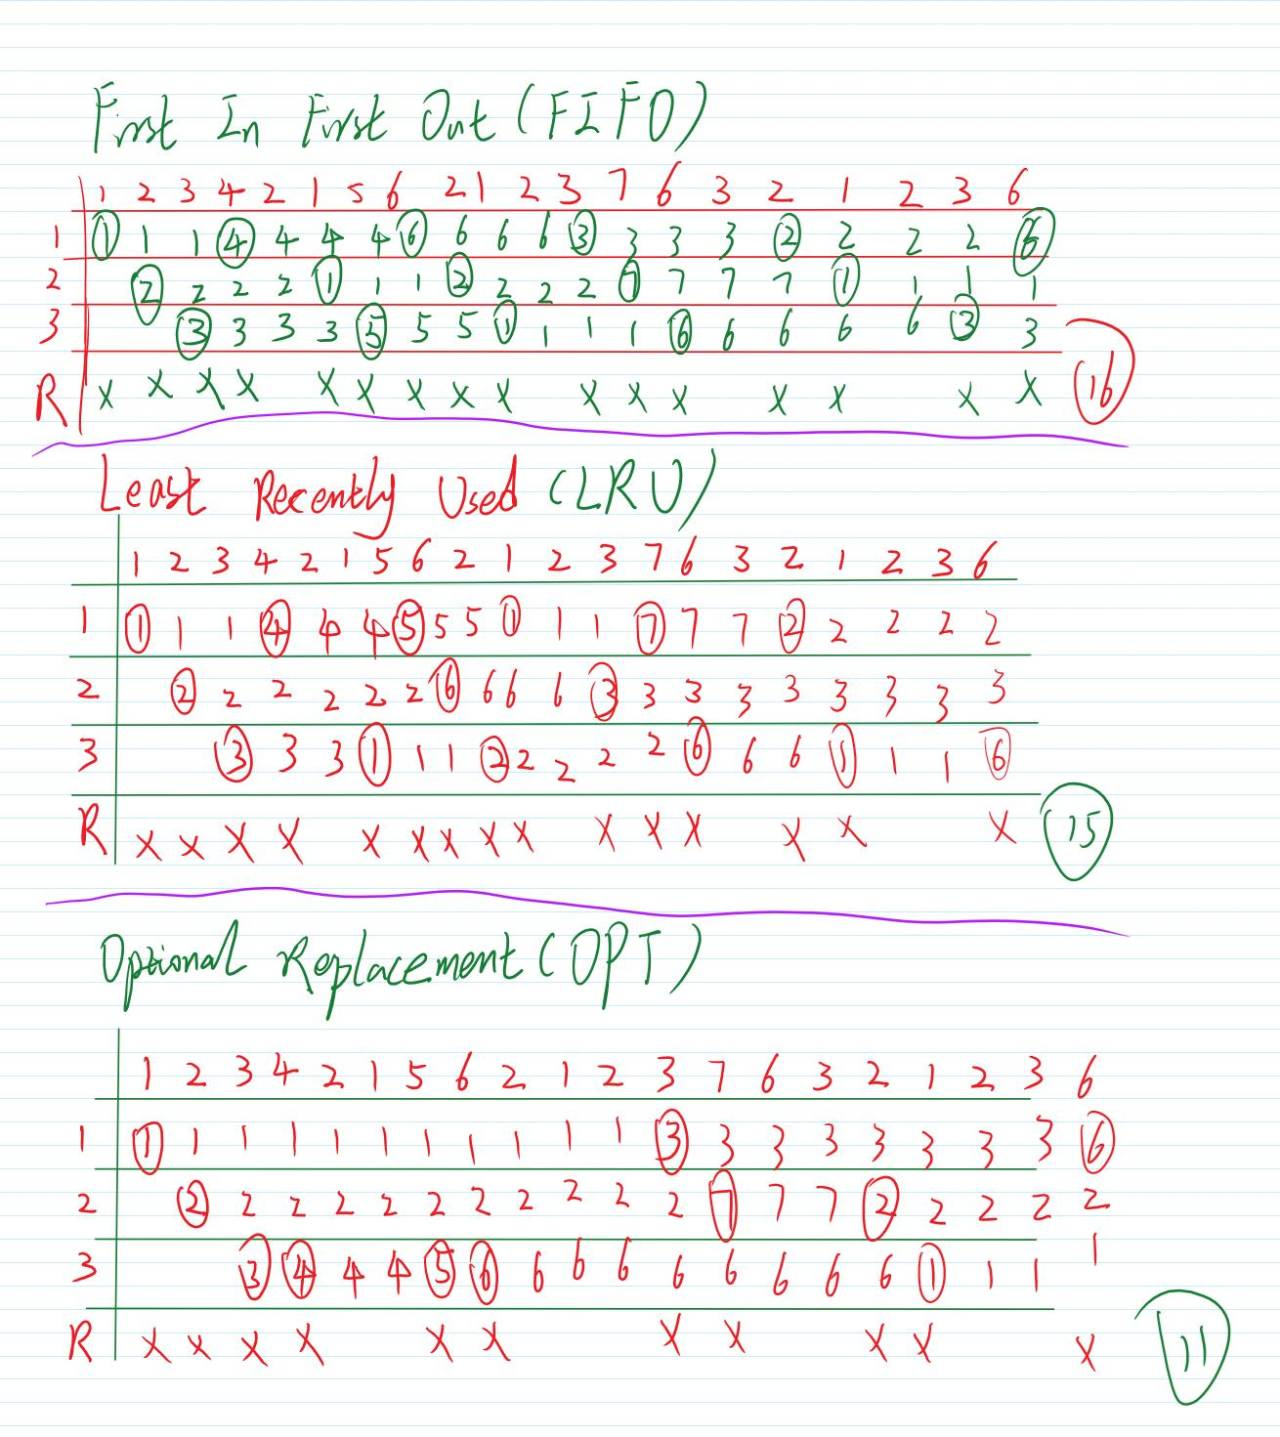 First In First Out (FIFO)
1 2 3 4 2 1 5 6 2 1 2 3 7 6 3 2 1 2 3 6
1 1 1 1 4 4 4 4 6 6 6 6 3 3 3 3 2 2 2 2 6
2 2 2 2 2 1 1 1 2 2 2 2 7 7 7 7 1 1 1 1
3 3 3 3 3 5 5 5 1 1 1 1 6 6 6 6 6 3 3
R X X X X X X X X X X X X X X X X 16
Least Recently Used (LRU)
1 2 3 4 2 1 5 6 2 1 2 3 7 6 3 2 1 2 3 6
1 1 1 1 4 4 4 5 5 5 1 1 1 7 7 7 2 2 2 2 2
2 2 2 2 2 2 2 6 6 6 6 3 3 3 3 3 3 3 3 3
3 3 3 3 1 1 1 2 2 2 2 2 6 6 6 1 1 1 6
R X X X X X X X X X X X X X X X 15
Optional Replacement (OPT)
1 2 3 4 2 1 5 6 2 1 2 3 7 6 3 2 1 2 3 6
1 1 1 1 1 1 1 1 1 1 1 1 3 3 3 3 3 3 3 3 6
2 2 2 2 2 2 2 2 2 2 2 2 7 7 7 2 2 2 2 2
3 3 4 4 4 5 6 6 6 6 6 6 6 6 6 1 1 1 1
R X X X X X X X X X X X 11